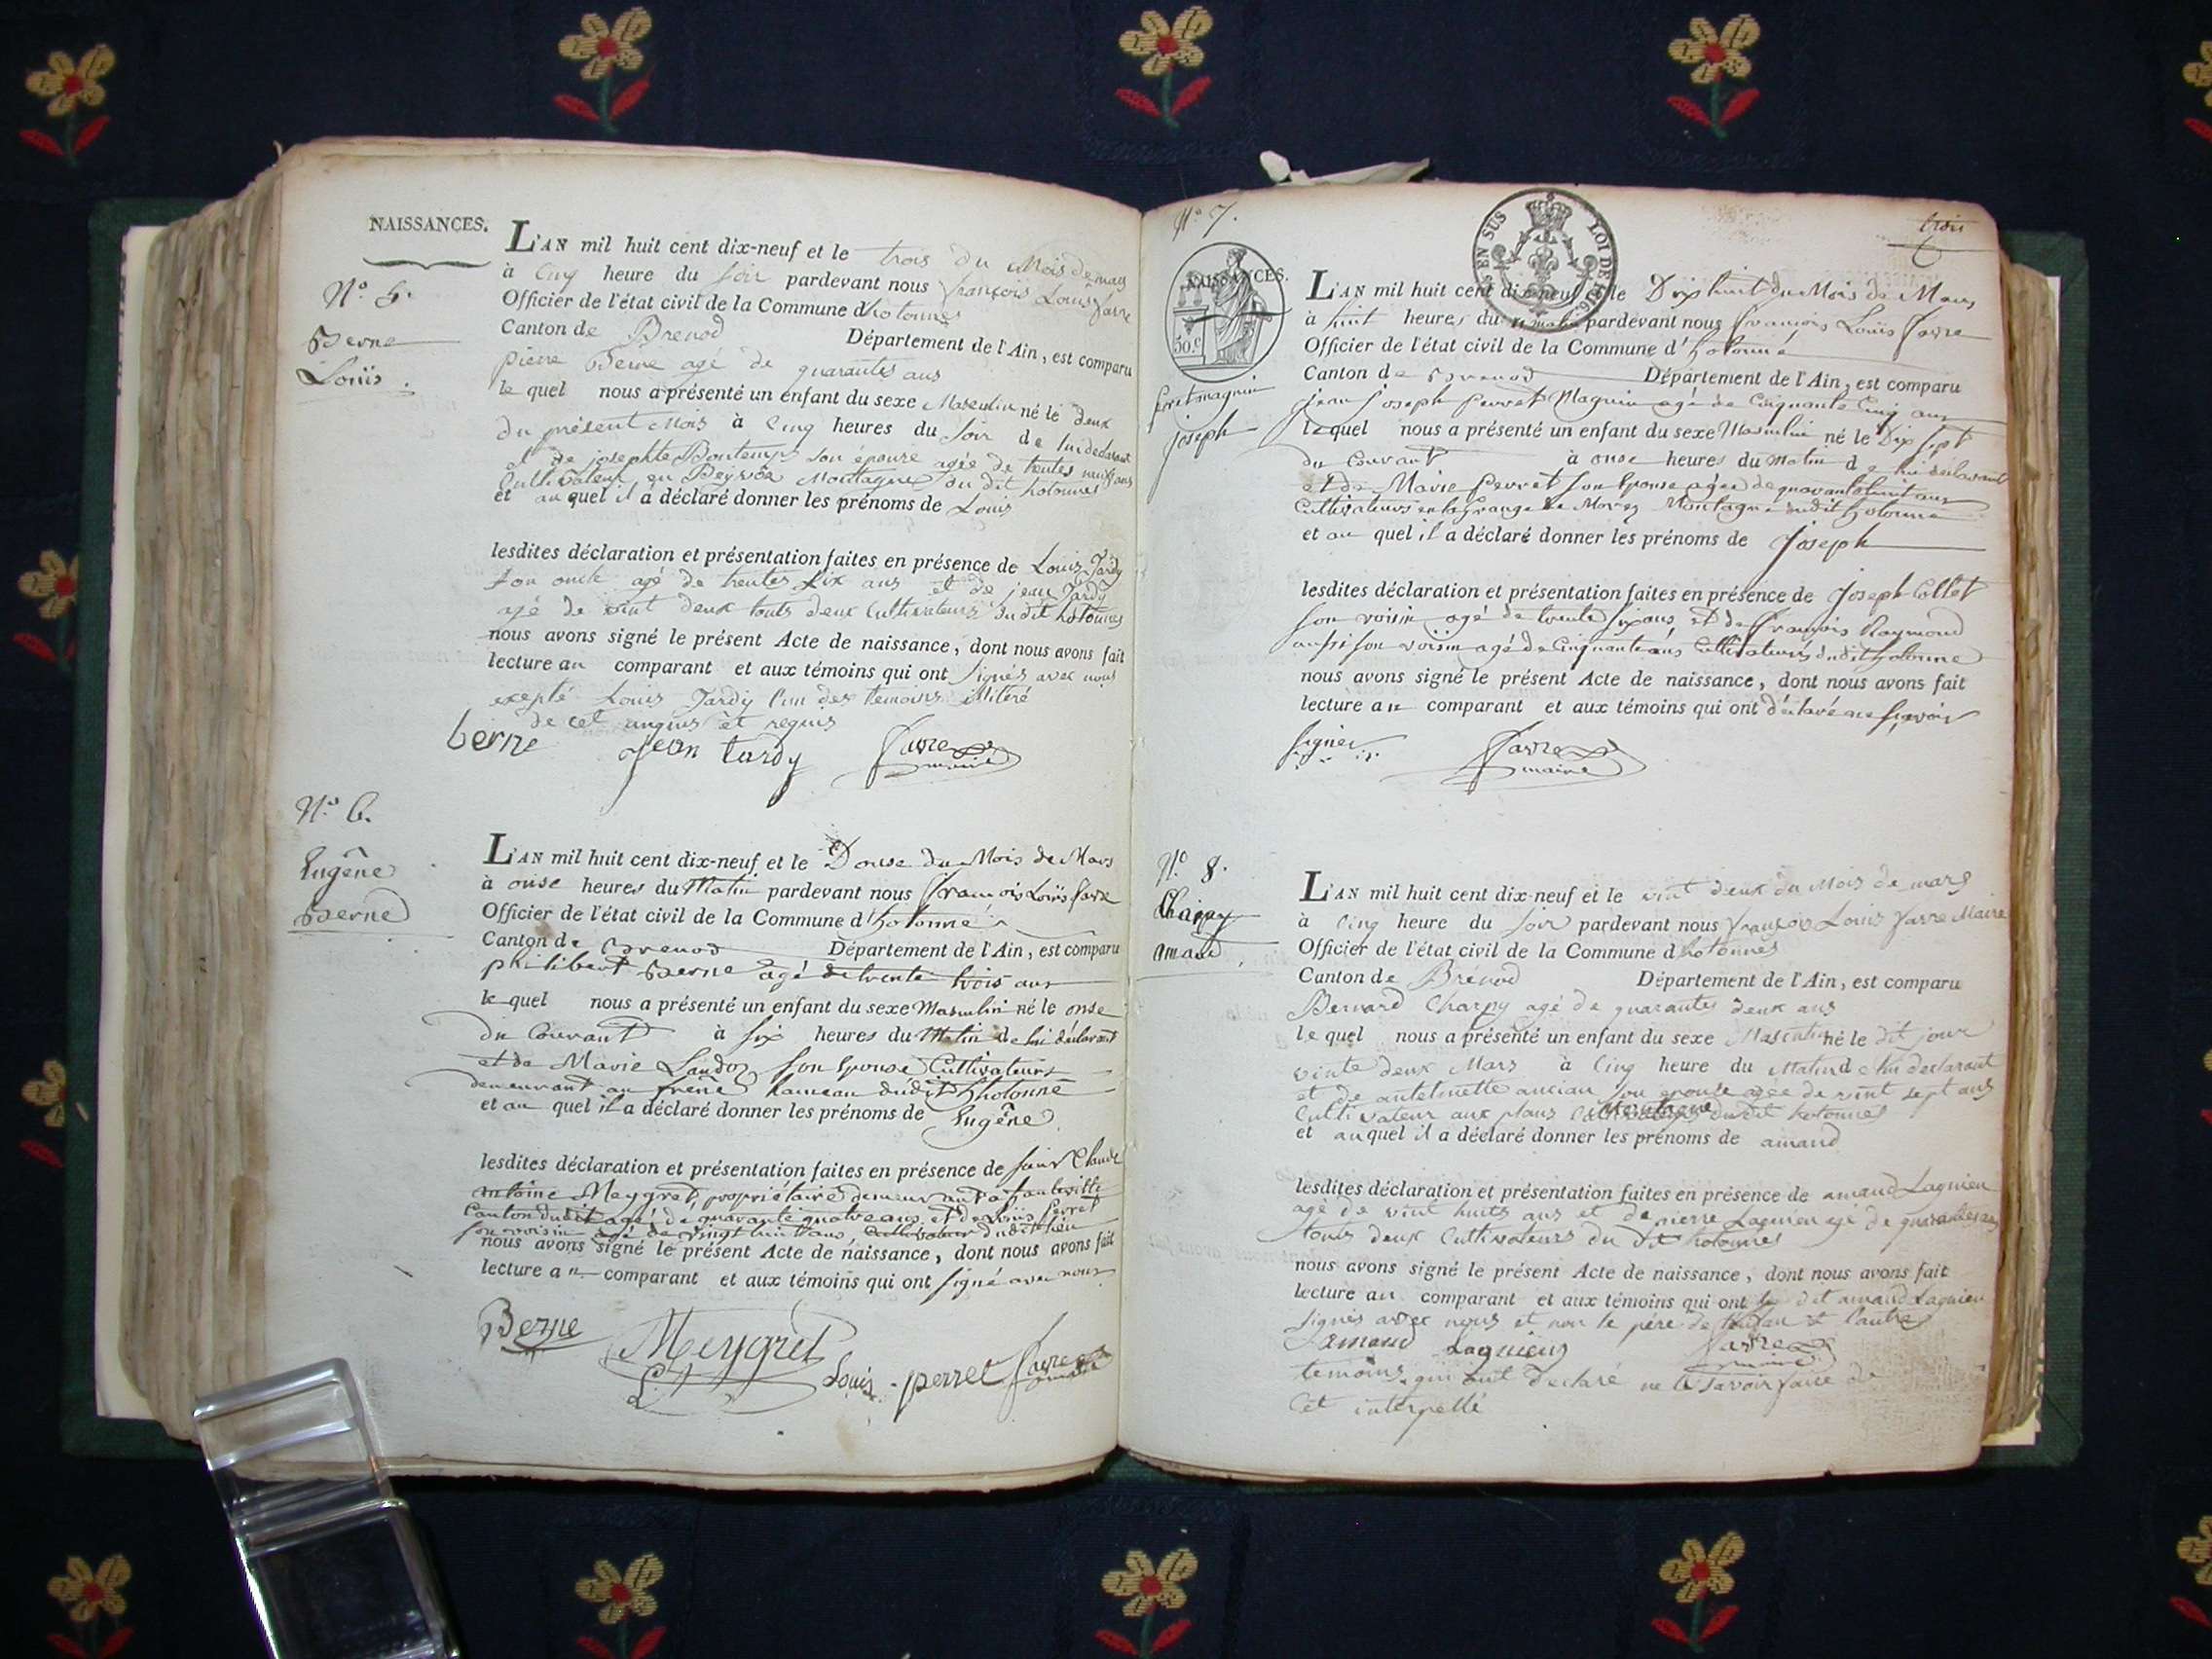 NAISSANCES.
N.o 5.
Berne
Louis.
L'AN mil huit cent dix-neuf et le trois du Mois de mars
à Cinq heure du soir pardevant nous françois Louis favre
Officier de l'état civil de la Commune d'hotonnes
Canton de Brenod Département de l'Ain, est comparu
pierre Berne agé de quarantes ans
le quel nous a présenté un enfant du sexe Masculin né le deux
du présent Mois à Cinq heures du soir de lui declarant
et de josephte Bontemps son épouse agée de trentes neuf ans
Cultivateur en Montagne du dit hotonnes
et au quel il a déclaré donner les prénoms de Louis
lesdites déclaration et présentation faites en présence de Louis Tardy
son oncle agé de trentes six ans et de jean Tardy
agé de vint deux touts deux Cultivateurs du dit hotonnes
nous avons signé le présent Acte de naissance, dont nous avons fait
lecture au comparant et aux témoins qui ont signés avec nous
exepté Louis Tardy l'un des temoins illitéré
de cet enquis et requis
berne Jean tardy favre maire
N.o 6.
Eugêne
Berne
L'AN mil huit cent dix-neuf et le Douse du Mois de Mars
à onse heures du Matin pardevant nous françois Louis favre
Officier de l'état civil de la Commune d'hotonne
Canton de Brenod Département de l'Ain, est comparu
philibert Berne agé de trente trois ans
le quel nous a présenté un enfant du sexe Masculin né le onse
du Courant à six heures du Matin de lui déclarant
et de Marie Landoz son Epouse Cultivateurs
demeurant au frêne hameau dudit hotonne
et au quel il a déclaré donner les prénoms de Eugêne
lesdites déclaration et présentation faites en présence de Claude
antoine Meygret, propriétaire demeurant a hauteville
Canton dudit agé de quarante quatre ans et de Louis Perret
son voisin agé de vingt huit ans, Cultivateur dudit lieu
nous avons signé le présent Acte de naissance, dont nous avons fait
lecture au comparant et aux témoins qui ont signé avec nous
Berne Meygret Louis perret favre maire
N.o 7.
trois
EN SUS LOI DE 1816
NAISSANCES.
50.c
perret magnin
joseph
L'AN mil huit cent dix-neuf et le Dix huit du Mois de Mars
à huit heures du matin pardevant nous françois Louis favre
Officier de l'état civil de la Commune d'hotonne
Canton de Brenod Département de l'Ain, est comparu
jean joseph perret Magnin agé de Cinquante Cinq ans
le quel nous a présenté un enfant du sexe Masculin né le Dix sept
du Courant à onse heures du matin de lui déclarant
et de Marie perret son Epouse agée de quarante huit ans
Cultivateurs en la grange de Morez Montagne dudit hotonne
et au quel il a déclaré donner les prénoms de Joseph
lesdites déclaration et présentation faites en présence de Joseph Collet
son voisin agé de trente six ans, et de françois Raymond
aussi son voisin agé de Cinquante ans Cultivateurs dudit hotonne
nous avons signé le présent Acte de naissance, dont nous avons fait
lecture au comparant et aux témoins qui ont déclaré ne savoir
signer favre maire
N.o 8.
Charpy
amand
L'AN mil huit cent dix-neuf et le vint deux du Mois de mars
à Cinq heure du soir pardevant nous françois Louis favre Maire
Officier de l'état civil de la Commune d'hotonnes
Canton de Brénod Département de l'Ain, est comparu
Bernard Charpy agé de quarantes deux ans
le quel nous a présenté un enfant du sexe Masculin né le dit jour
vinte deux Mars à Cinq heure du Matin de lui declarant
et de antelmette ancian son epouse agée de vint sept ans
Cultivateur aux plans Montagne du dit hotonnes
et au quel il a déclaré donner les prénoms de amand
lesdites déclaration et présentation faites en présence de amand Lagnieu
agé de vint huits ans et de pierre Lagnieu agé de quarantes ans
touts deux Cultivateurs du dit hotonnes
nous avons signé le présent Acte de naissance, dont nous avons fait
lecture au comparant et aux témoins qui ont le dit amand Lagnieu
signés avec nous et non le père de l'enfan et l'autre
amand Lagnieu favre maire
temoins qui ont declaré ne le savoir faire de
cet interpellé